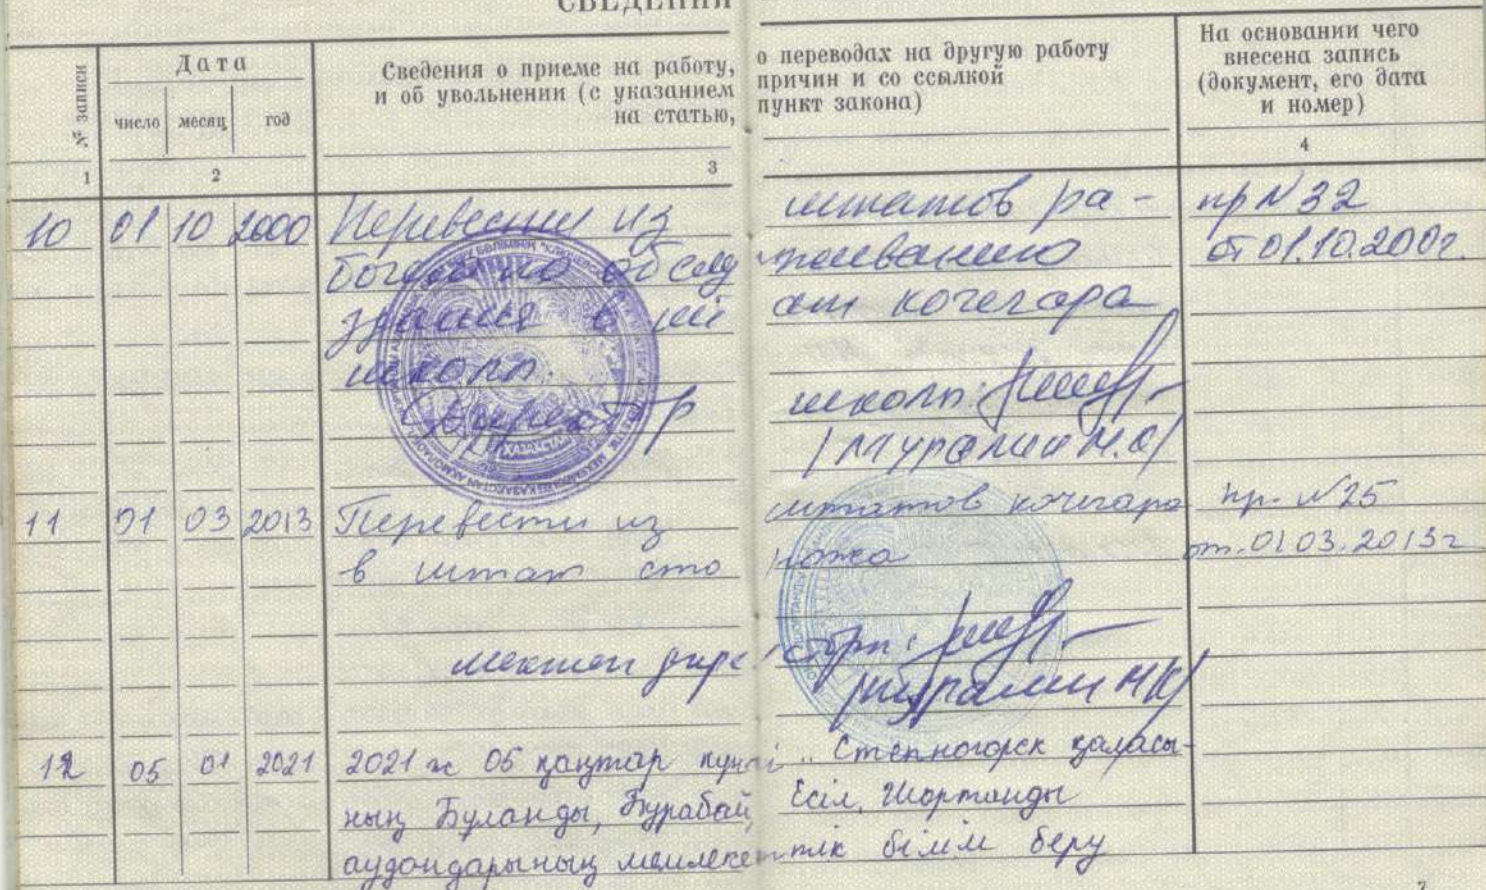 СВЕДЕНИЯ
№ записи
Дата
число месяц год
Сведения о приеме на работу, о переводах на другую работу
и об увольнении (с указанием причин и со ссылкой
на статью, пункт закона)
На основании чего
внесена запись
(документ, его дата
и номер)
1 2 3 4
10 01 10 2000 Перевести из штатов ра- пр N 32
бочего по обслуживанию от 01.10.200г.
здания в кочегара
школы.
Директор школы:
/Муралин Н.К/
11 01 03 2013 Перевести из штатов кочегара пр. №25
в штат сторожа от. 01 03. 2013г
мектеп директоры:
Муралин НК/
12 05 01 2021 2021 ж 05 қаңтар күні Степногорск қаласы-
ның Буланды, Бурабай, Есіл, Шортанды
аудандарының мемлекеттік білім беру